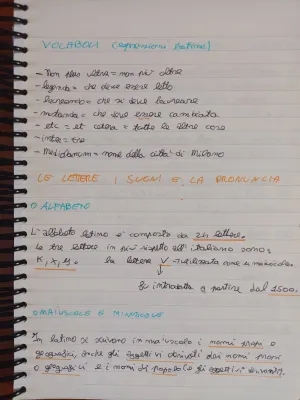 VOCABOLI (espressioni latine)
- Non plus ultra = non più oltre
- legenda = che deve essere letto
- laureando = che si deve laureare
- mutanda = che deve essere cambiata
- etc = et cetera = tutte le altre cose
- inter = tra
- Mediolanum = nome della città di Milano
LE LETTERE, I SUONI E LA PRONUNCIA
O ALFABETO
L'alfabeto latino è composto da 24 lettere.
Le tre lettere in più rispetto all'italiano sono:
K, x, y. La lettera V → utilizzata come u maiuscola.
Fu introdotta a partire dal 1500.
O MAIUSCOLE E MINUSCOLE
In latino si scrivono in maiuscolo i nomi propri e
geografici, anche gli aggettivi derivati dai nomi propri
o geografici e i nomi di popolo (e gli aggettivi